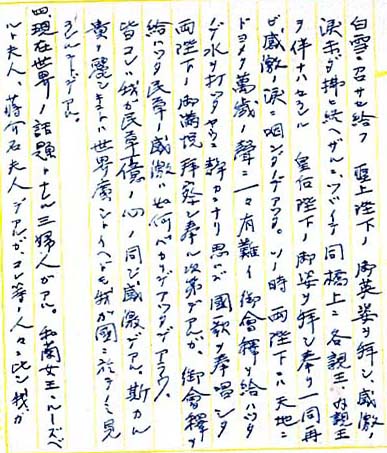 白雪ニ召サセ給フ 聖上陛下ノ御英姿ヲ拝シ感激ノ
涙未ダ拂ヒ終ヘザルニ、ツヅイテ同橋上ニ各親王、内親王
ヲ伴ナハセラレル 皇后陛下ノ御姿ヲ拝シ奉リ一同再
ビ感激ノ涙ニ咽ンダデアッタ。ソノ時 両陛下ニハ天地ニ
ドヨメク萬歳ノ聲ニ一々有難イ御會釋ヲ給ハッタ
ガ水ヲ打ッタヤウニ静カニナリ思ハズ國歌ヲ奉唱シタ
両陛下ノ御満悦拝察シ奉ル次第デアルガ、御會釋ヲ
給ハッタ民草ノ感激ハ如何バカリデアッタデアラウ。
皆コレハ我ガ民草一億ノ心ノ同ジ感激デアル。斯カル
貴ク麗シキコトハ世界廣シトイヘドモ我ガ國ニ於テノミ見
ラレルコトデアル。
四 現在世界ノ話題トナル三婦人ガアル。和蘭女王、ルーズベ
ルト夫人、蒋介石夫人デアルガコレ等ノ人々ニ比シ我ガ